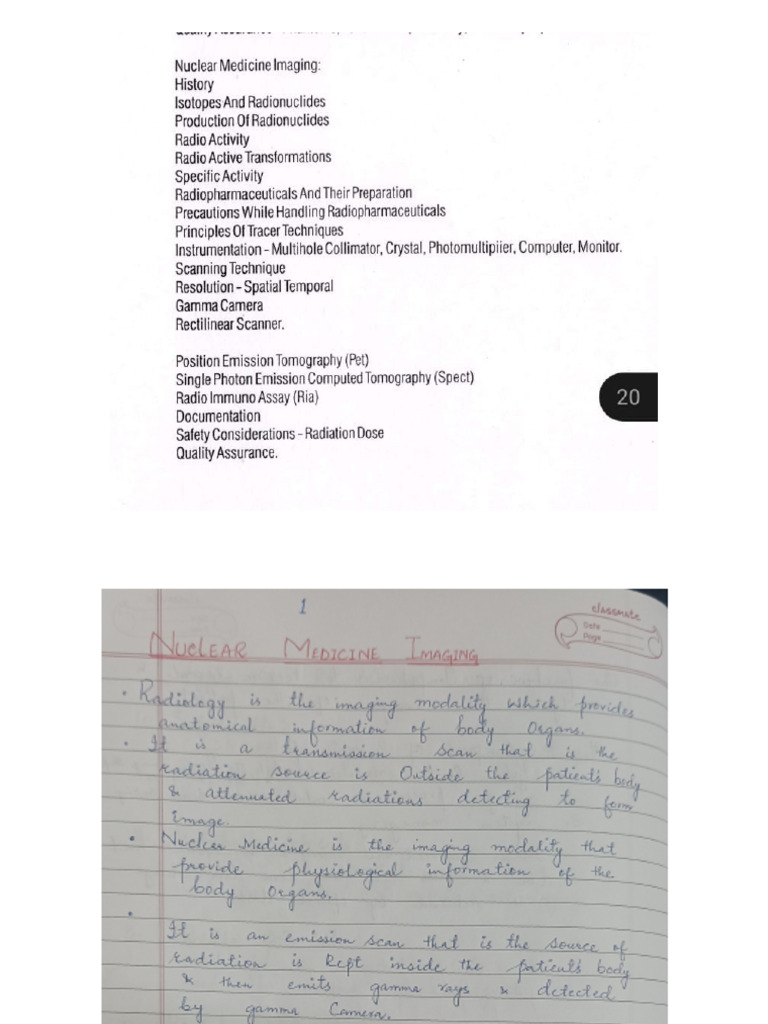 Nuclear Medicine Imaging:
History
Isotopes And Radionuclides
Production Of Radionuclides
Radio Activity
Radio Active Transformations
Specific Activity
Radiopharmaceuticals And Their Preparation
Precautions While Handling Radiopharmaceuticals
Principles Of Tracer Techniques
Instrumentation - Multihole Collimator, Crystal, Photomultipiier, Computer, Monitor.
Scanning Technique
Resolution - Spatial Temporal
Gamma Camera
Rectilinear Scanner.
Position Emission Tomography (Pet)
Single Photon Emission Computed Tomography (Spect)
20
Radio Immuno Assay (Ria)
Documentation
Safety Considerations - Radiation Dose
Quality Assurance.
1
classmate
Date
Page
NUCLEAR MEDICINE IMAGING
• Radiology is the imaging modality which provides
anatomical information of body organs.
• It is a transmission scan that is the
radiation source is Outside the patient's body
& attenuated radiations detecting to form
image.
• Nuclear Medicine is the imaging modality that
provide physiological information of the
body Organs.
• It is an emission scan that is the source of
radiation is kept inside the patient's body
& then emits gamma rays & detected
by gamma Camera.